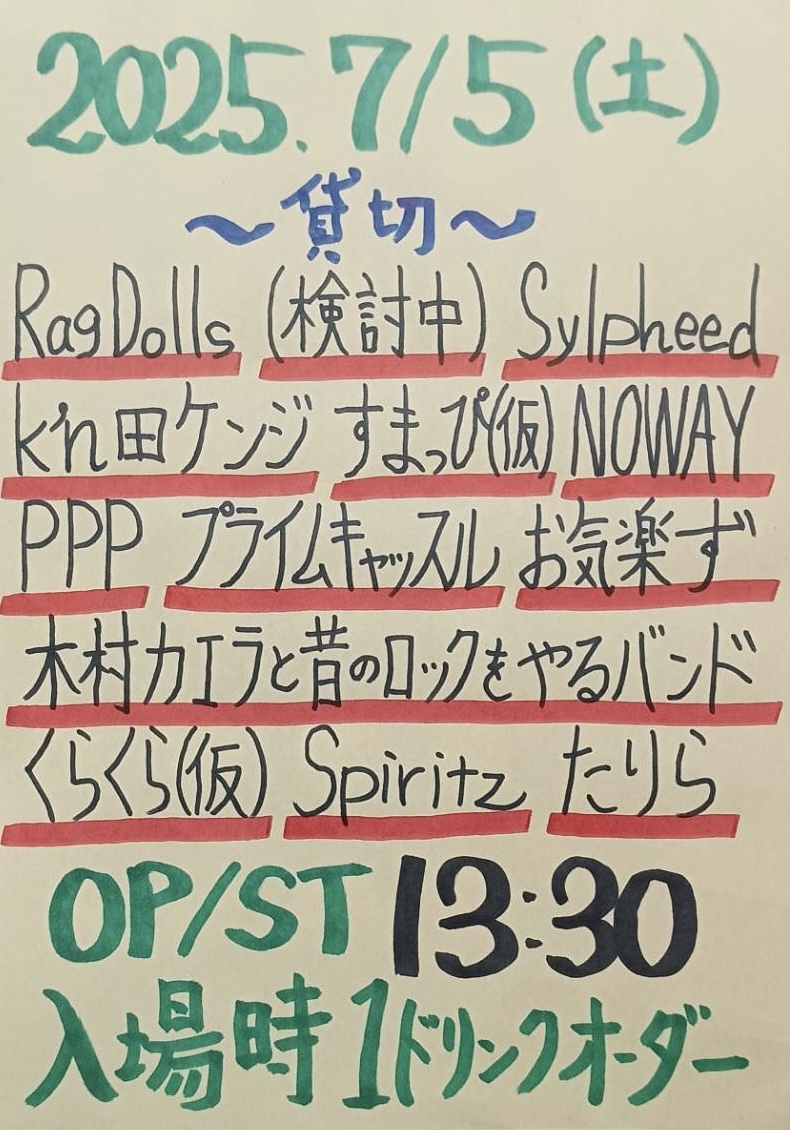 2025.7/5(土)
～貸切～
RagDolls (検討中) Sylpheed
k'n田ケンジ すまっぴ(仮) NOWAY
PPP プライムキャッスル お気楽ず
木村カエラと昔のロックをやるバンド
くらくら(仮) Spiritz たりら
OP/ST 13:30
入場時1ドリンクオーダー